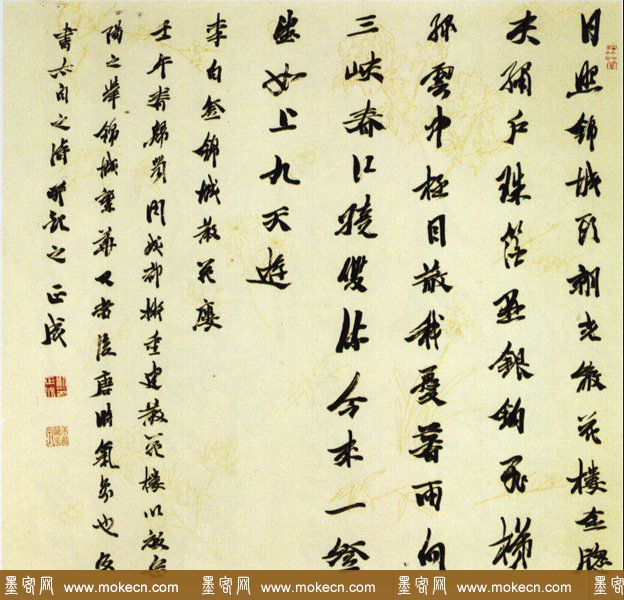 日照錦城頭朝光散花樓金牕
夾繡戶珠箔懸銀鉤飛梯
綠雲中極目散我憂暮雨向
三峽春江繞雙流今來一登
望如上九天遊
李白登錦城散花樓
壬午春歸蜀聞成都擬重建散花樓以
陽之華錦城繁華唐時氣象也
書太白之詩記之正成
墨客网 www.mokecn.com 墨客网 www.mokecn.com 墨客网 www.mokecn.com